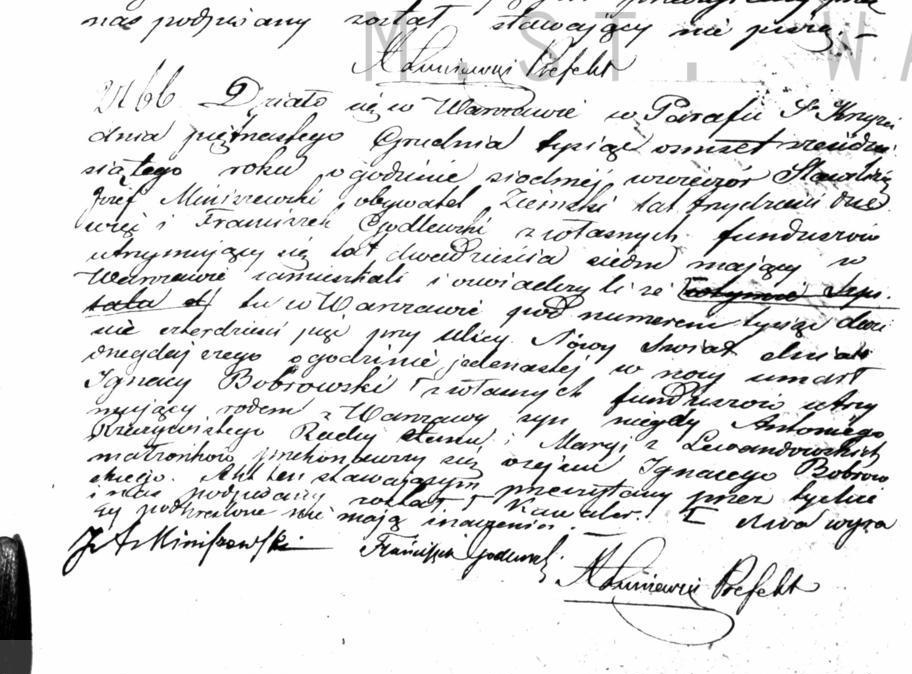 nas podpisany został stawający nie piszą. –
M.ST. WA
Prefekt
2166 Działo się w Warszawie w Parafii Sº Krzyża
dnia piętnastego Grudnia tysiąc osmset sześćdzie
siątego roku o godzinie siodmej wieczór Stawili się
Józef Miniszewski obywatel Ziemski lat trzydzieści dzie
więć i Franciszek Godlewski z własnych funduszów
utrzymujący się lat dwadzieścia siedm mający w
Warszawie zamieszkali i oswiadczyli że
tu w Warszawie pod numerem tysiąc dwie
ście czterdzieści pięć przy Ulicy Nowy Swiat dnia
onegdajszego o godzinie jedenastej w nocy umarł
Ignacy Bobrowski z własnych funduszów utrzy
mujący rodem z Warszawy syn niegdy Antoniego
Rzeczywistego Radcy Stanu i Maryi z Lewandowskich
małżonków przekonawszy się o zejściu Ignacego Bobrow
skiego. Akt ten stawającym przeczytany przez tychże
i nas podpisany został. Słowa wyżej
podkreślone nie mają znaczenia.
Miniszewski Franciszek Godlewski
Prefekt